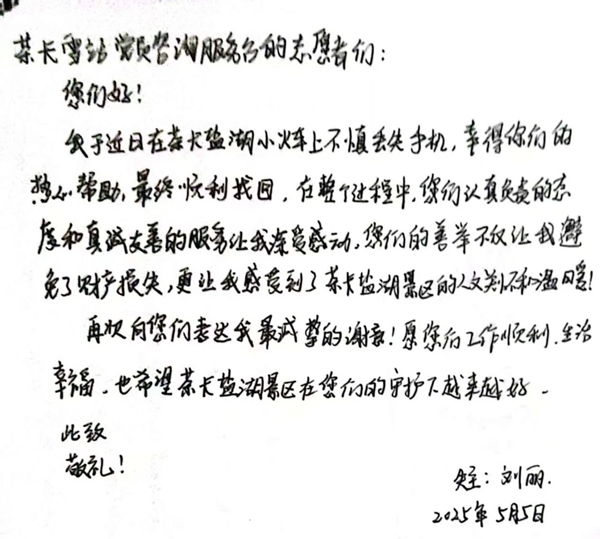 茶卡雪站党员咨询服务台的志愿者们：
您们好！
我于近日在茶卡盐湖小火车上不慎丢失手机，幸得你们的
热心帮助，最终顺利找回，在整个过程中，您们认真负责的态
度和真诚友善的服务让我深受感动，您们的善举不仅让我避
免了财产损失，更让我感受到了茶卡盐湖景区的人文关怀和温暖！
再次向您们表达我最诚挚的谢意！愿您们工作顺利，生活
幸福，也希望茶卡盐湖景区在您们的守护下越来越好。
此致
敬礼！
失主：刘丽.
2025年5月5日